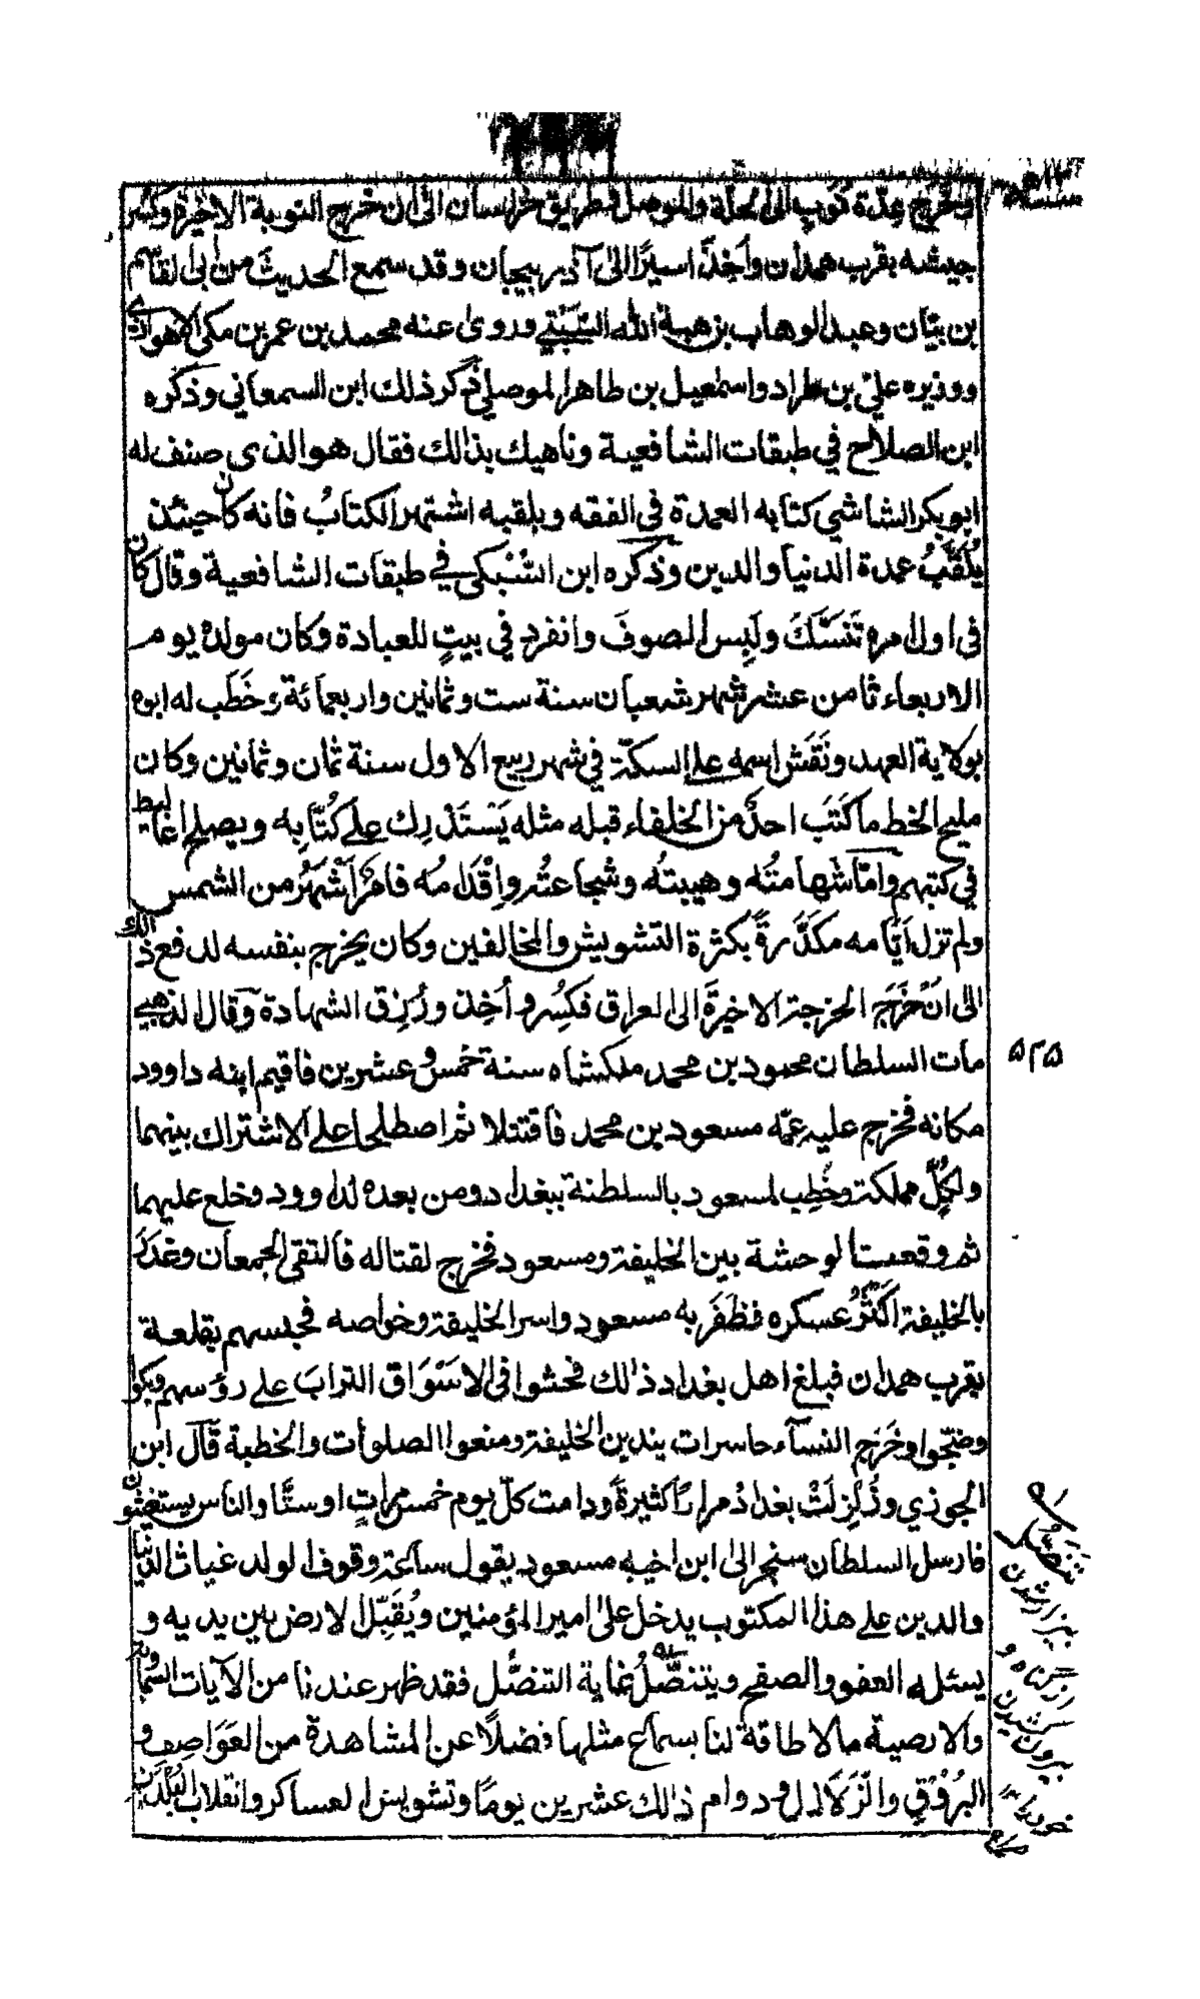 وخرج عدة نوب الى الحلة والموصل وطريق خراسان الى ان خرج النوبة الاخيرة وكسر
جيشه بقرب همدان وأُخِذَ اسيرًا الى آذربيجان وقد سمع الحديث من ابى القاسم
بن بيان وعبد الوهاب بن هبة الله السَّيبي وروى عنه محمد بن عمر بن مكى الاهوازى
ووزيره علي بن طراد واسمعيل بن طاهر الموصلي ذكر ذلك ابن السمعاني وذكره
ابن الصلاح في طبقات الشافعية وناهيك بذالك فقال هو الذى صنف له
ابو بكر الشاشي كتابه العمدة في الفقه وبلقبه اشتهر الكتابُ فانه كان حينئذ
يُلَقَّبُ عمدة الدنيا والدين وذكره ابن السُّبْكى في طبقات الشافعية وقال كان
فى اول امره تَنَسَّكَ ولَبِس الصوفَ وانفرد في بيتٍ للعبادة وكان مولده يوم
الاربعاء ثامن عشر شهر شعبان سنة ست وثمانين واربعمائة وخَطَب له ابوه
بولاية العهد ونَقَش اسمه على السكة في شهر ربيع الاول سنة ثمان وثمانين وكان
مليح الخط ما كَتَبَ احدٌ من الخلفاء قبله مثله يَسْتَدْرِك على كُتَّابِه ويصلح اغاليط
في كتبهم وامّا شهامتُه وهيبتُه وشجاعته وإِقْدَامُه فامرٌ أَشْهَرُ من الشمس
ولم تزل أيّامه مكَدَّرةً بكثرة التشويش والمخالفين وكان يخرج بنفسه لدفع ذالك
الى انْ خَرَجَ الخرجة الاخيرةَ الى العراق فكُسِر وأُخِذ ورُزِق الشهادة وقال الذهبي
مات السلطان محمود بن محمد ملكشاه سنة خمس وعشرين فاقيم ابنه داوود
۵۲۵
مكانه فخرج عليه عمّه مسعود بن محمد فاقتتلا ثم اصطلحا على الاشتراك بينهما
ولكُلٍّ مملكة وخُطِب لمسعود بالسلطنة ببغداد ومن بعده لداوود وخلع عليهما
ثم وقعت الوحشة بين الخليفة ومسعود فخرج لقتاله فالتقى الجمعان وغَدَرَ
بالخليفة اكْثَرُ عسكره فظَفَرَ به مسعود واسر الخليفة وخواصه فحبسهم بقلعة
بقرب همدان فبلغ اهل بغداد ذالك فحثوا فى الاسْوَاق الترابَ على رؤسهم وبكوا
وضجّوا وخَرَج النسآء حاسرات يندبن الخليفة ومنعوا الصلوات والخطبة قَالَ ابن
الجوزي وزُلْزِلَتْ بغداذُ مرارًا كثيرةً ودامت كلّ يوم خمس مراتٍ اوستًّا والناس يستغيثون
فارسل السلطان سنجر الى ابن اخيه مسعود يقول ساعة وقوف الولد غياث الدنيا
والدين على هذا المكتوب يدخل على امير المؤمنين ويُقَبِّل الارض بين يديه و
يسئله العفو والصفح ويتنصَّلُ غاية التنصُّل فقد ظهر عندنا من الآيات السماوية
والارضية مالا طاقة لنا بسماع مثلها فضلًا عن المشاهدة من العَوَاصِف و
البُرُوْقِ والزَلَازِل ودوام ذالك عشرين يومًا وتشويش العساكر وانقلاب البُلْدَان
تنصّل
بيزار شدن
از كناه و
بيرون شدن